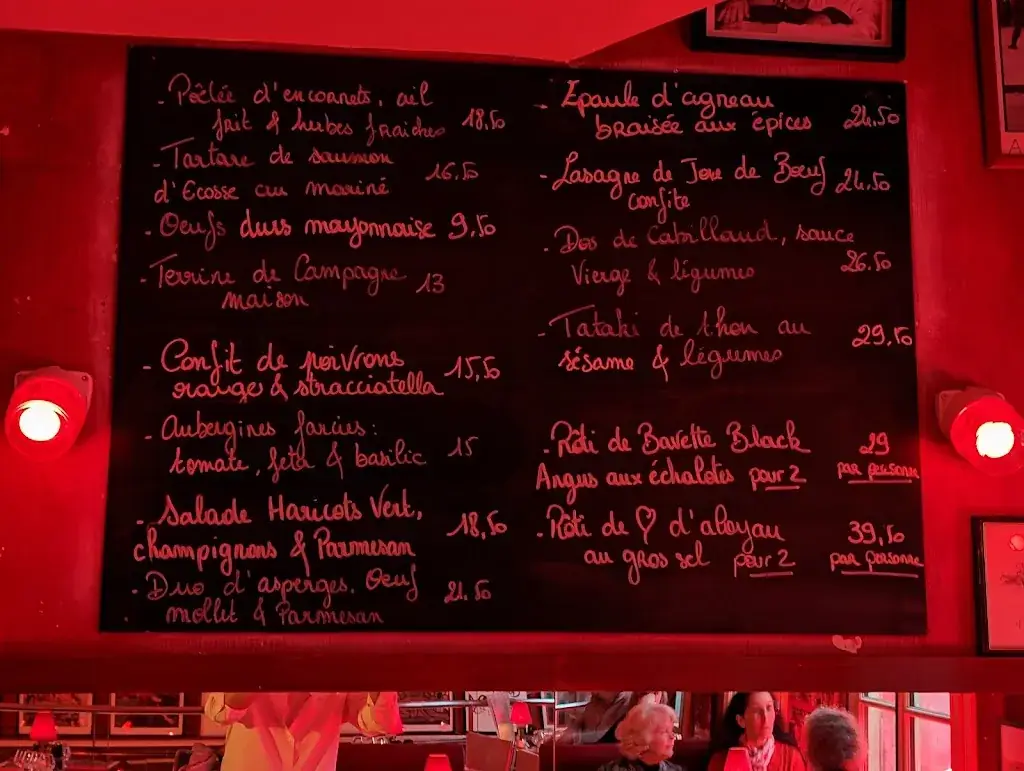 - Poêlée d'encornets, ail
frit & herbes fraiches 18,50
- Tartare de saumon
d'Ecosse cru mariné 16.50
- Oeufs durs mayonnaise 9,50
- Terrine de Campagne
maison 13
- Confit de poivrons
rouge & stracciatella 15,50
- Aubergines farcies:
tomate, feta & basilic 15
- Salade Haricots Vert,
champignons & Parmesan 18,50
- Duo d'asperges. Oeuf
mollet & Parmesan 21.50
- Epaule d'agneau
braisée aux épices 24.50
- Lasagne de Joue de Boeuf
confite 24.50
- Dos de Cabillaud, sauce
Vierge & légumes 26.50
- Tataki de thon au
sésame & légumes 29,50
- Rôti de Bavette Black 29
Angus aux échalotes pour 2 par personne
- Rôti de ♡ d'aloyau 39,50
au gros sel pour 2 par personne